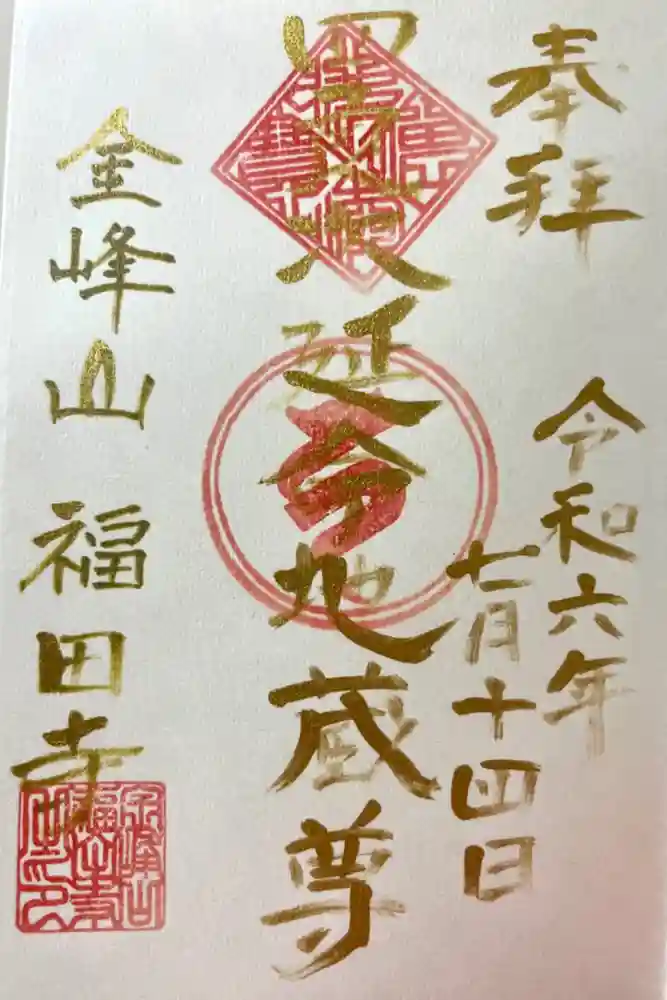 奉拝
令和六年
七月十四日
延命地蔵尊
金峰山 福田寺